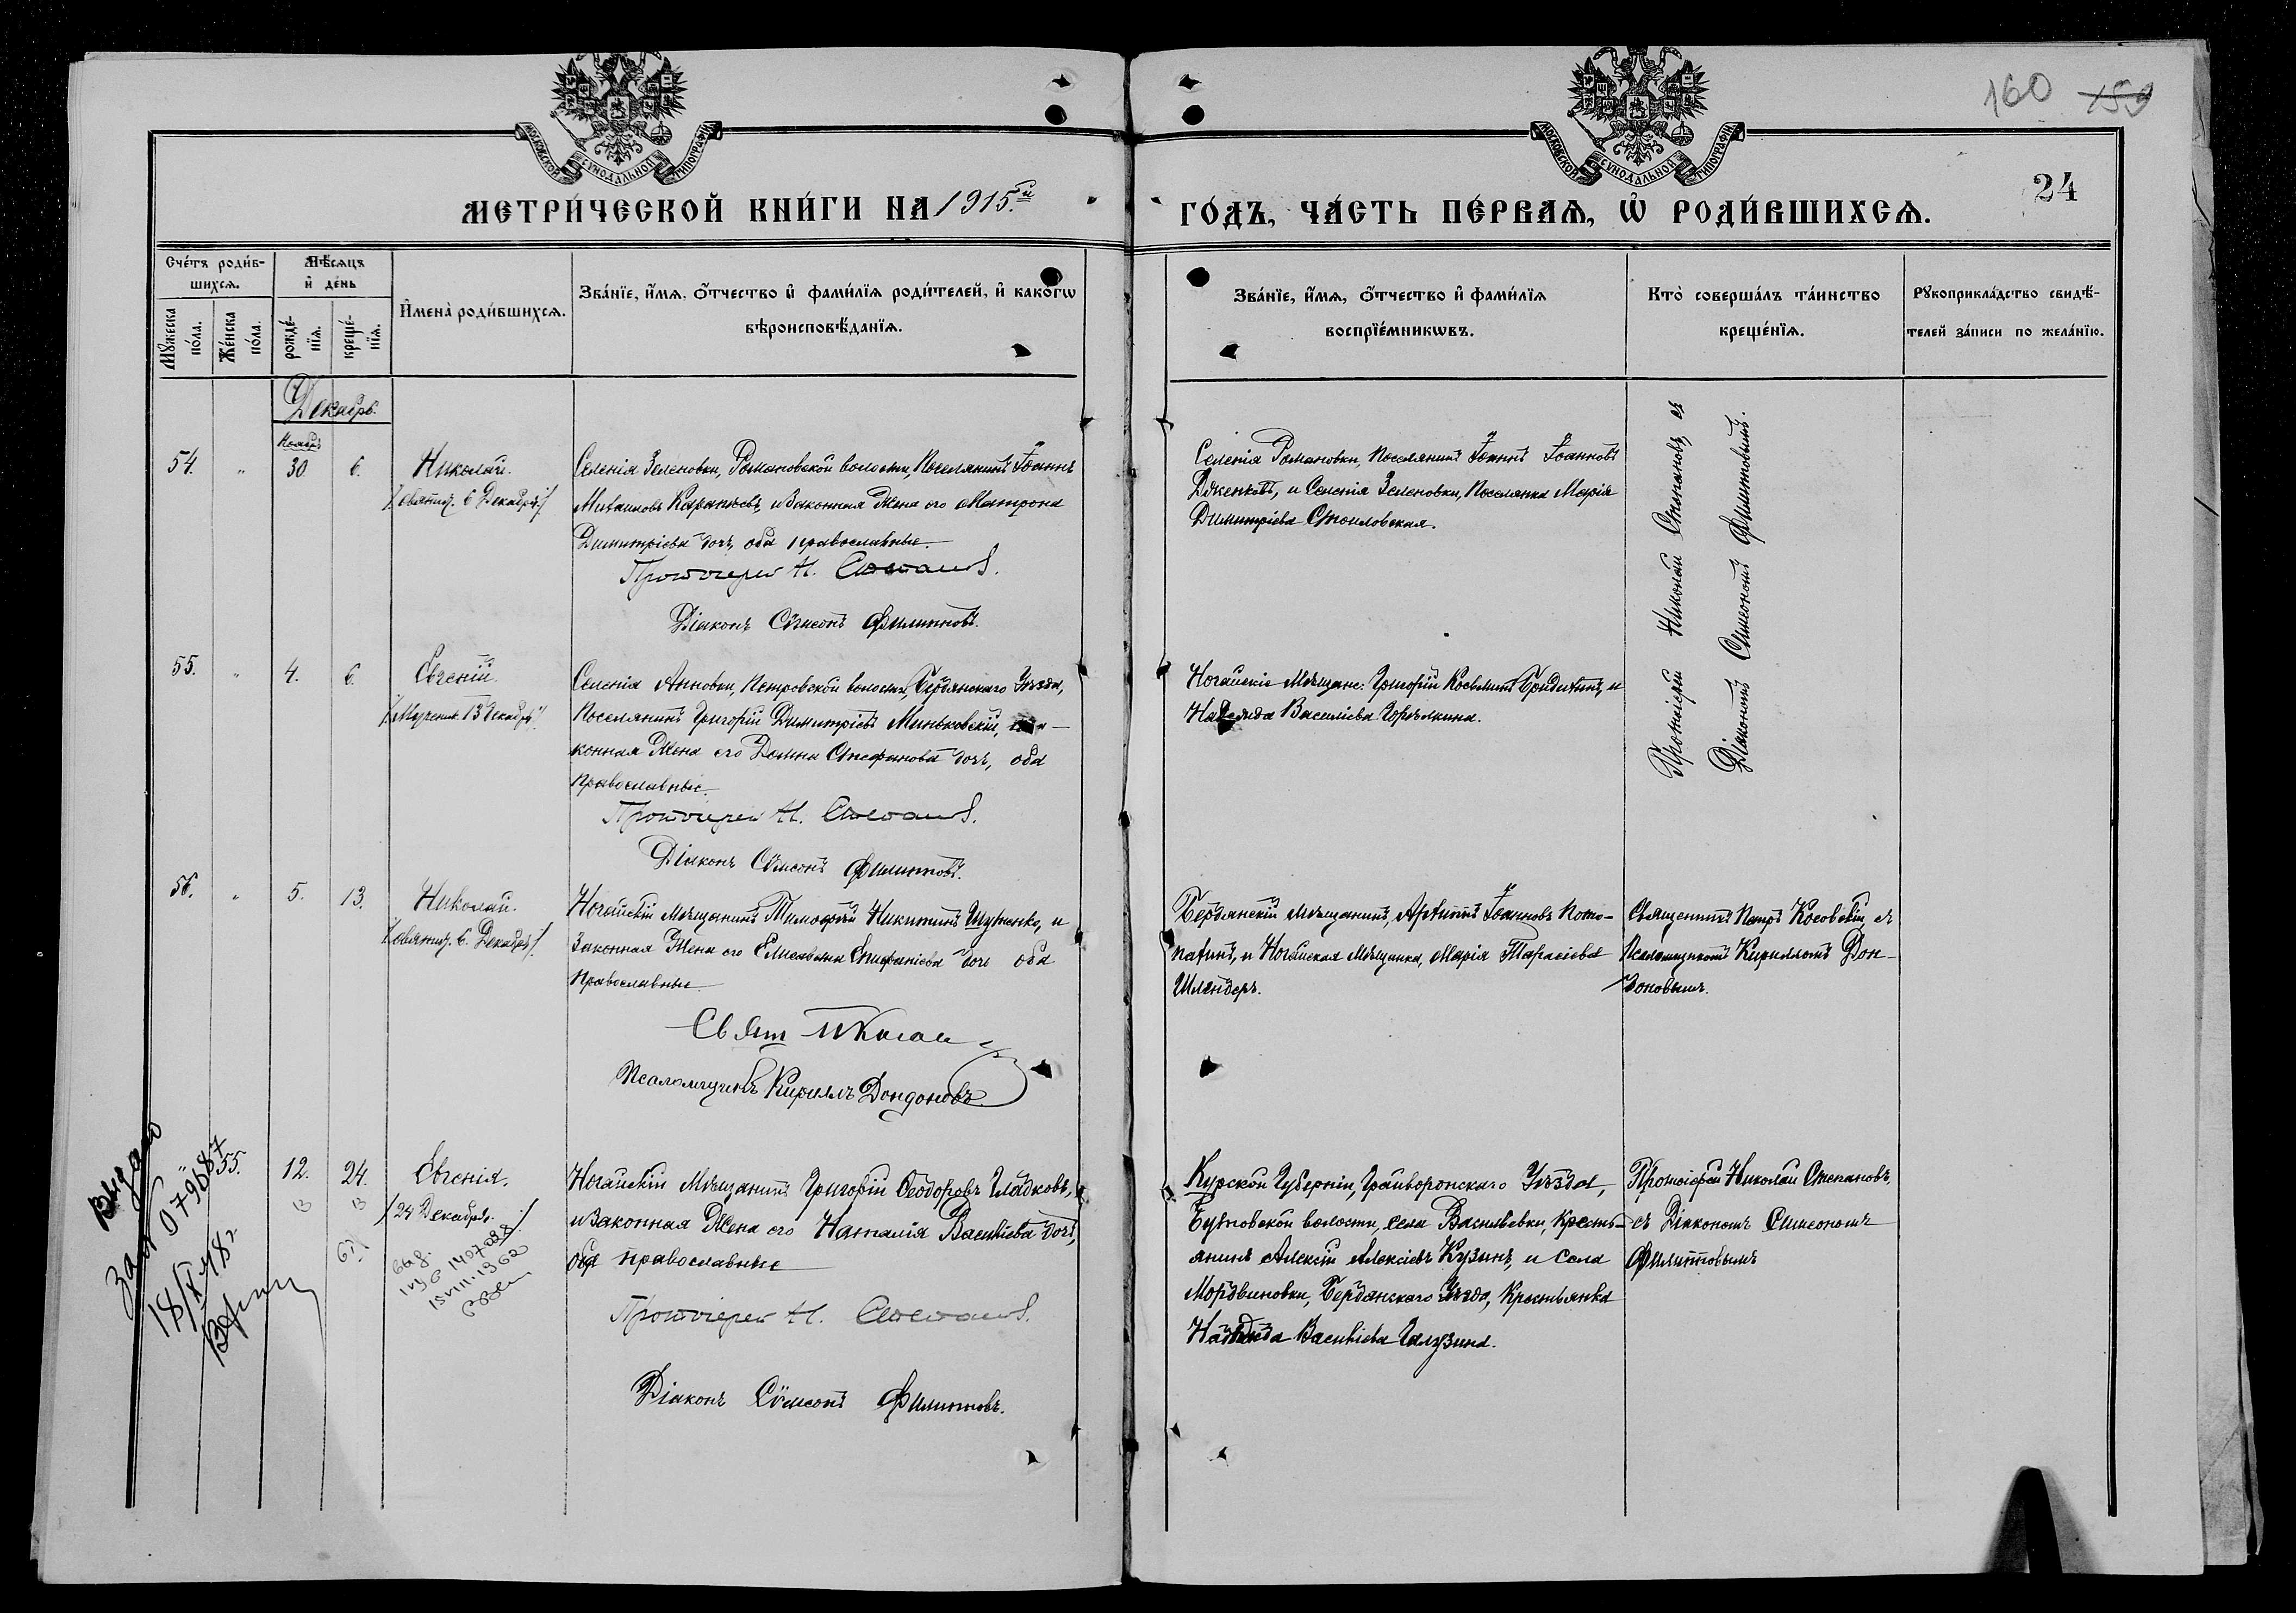 160 159
МОСКОВСКОЙ СУНОДАЛЬНОЙ ТИПОГРАФІИ
МОСКОВСКОЙ СУНОДАЛЬНОЙ ТИПОГРАФІИ
24
МЕТРИ́ЧЕСКОЙ КНИ́ГИ НА 1915.й
ГО́ДЪ, ЧА́СТЬ ПЕ́РВАѦ, Ѽ РОДИ́ВШИХСѦ.
Сче́тъ роди́в-
шихсѧ.
Мꙋ́жеска по́ла.
Же́нска по́ла.
Мѣ́сѧцъ
и҆ де́нь
рожде́-
нїѧ.
креще́-
нїѧ.
И҆мена̀ роди́вшихсѧ.
Зва́нїе, и҆́мѧ, ѻ҆́тчество и҆ фами́лїѧ роди́телей, и҆ како́гѡ
вѣроисповѣ́данїѧ.
Зва́нїе, и҆́мѧ, ѻ҆́тчество и҆ фами́лїѧ
воспрїе́мникѡвъ.
Кто̀ соверша́лъ та́инство
креще́нїѧ.
Рꙋкоприкла́дство свидѣ́-
телей за́писи по жела́нїю.
Декабрь.
Ноябрь
54. " 30 6. Николай.
/: святит. 6 Декабря :/
Селенія Зеленовки, Романовской волости, Поселянинъ Іоаннъ
Михаиловъ, и Законная Жена его Матрона
Димитріева дочь, оба православные.
Протоіерей Н. Степановъ.
Діаконъ Сѵмеонъ Филиповъ.
Селенія Романовки, Поселянинъ Іоаннъ Іоанновъ
и Селенія Зеленовки, Поселянка Марія
Димитріева Стоиловская.
Протоіерей Николай Степановъ, съ
Діакономъ Симеономъ Филиповымъ.
55. " 4. 6. Евгеній.
/: Мученик. 13 Декабря :/
Селенія Анновки, Петровской волости, Бердянскаго Уѣзда,
Поселянинъ Григорій Димитріевъ Миньковскій,
конная Жена его Домна Стефанова дочь, оба
православные.
Протоіерей Н. Степановъ.
Діаконъ Сѵмеонъ Филиповъ.
Ногайскіе Мѣщане: Григорій Косьминъ и
Надежда Василіева Горѣлкина.
56. " 5. 13. Николай.
/: святит. 6. Декабря :/
Ногайскій Мѣщанинъ Тимофей Никитинъ и
Законная Жена его Елисавета Епифаніева дочь оба
Православные
Свящ
Псаломщикъ Кириллъ Дондоновъ
Бердянскій Мѣщанинъ, Архиппъ Іоанновъ Поно-
и Ногайская Мѣщанка, Марія Тарасіева
Шлендеръ.
Священникъ Петръ Косовскій, съ
Псаломщикомъ Кирилломъ Дон-
доновымъ.
" 55. 12. 24. Евгенія.
/: 24 Декабря. :/
Ногайскій Мѣщанинъ Григорій Ѳеодоровъ Гладковъ,
и Законная Жена его Наталія Василіева дочь,
оба православные
Протоіерей Н. Степановъ.
Діаконъ Сѵмеонъ Филиповъ.
Курской Губерніи, Грайворонскаго Уѣзда,
волости, села Васильевки, Кресть-
янинъ Алексій Алексіевъ Кузинъ, и Села
Мордвиновки, Бердянскаго Уѣзда, Крестьянка
Надежда Василіева Галузина.
Протоіерей Николай Степановъ,
съ Діакономъ Симеономъ
Филипповымъ
Видано
079687